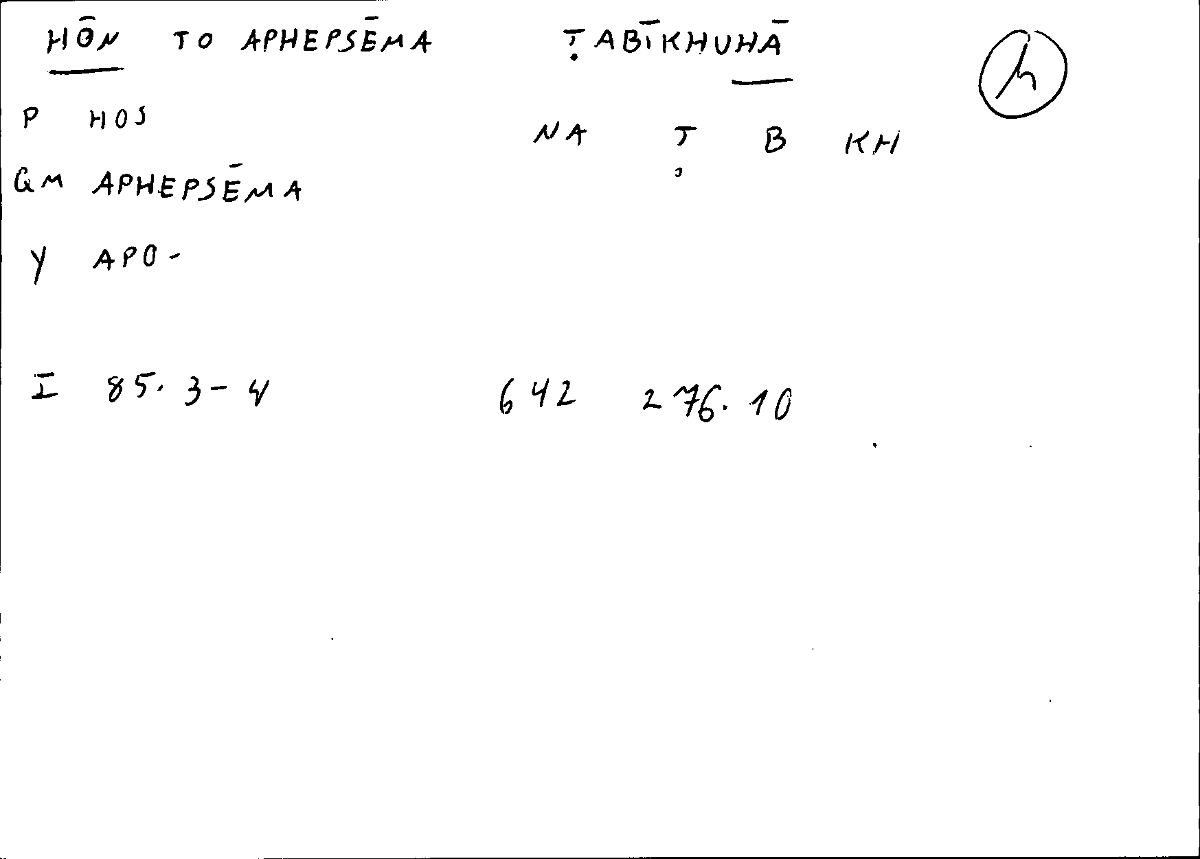 HŌN TO APHEPSĒMA ṬABĪKHUHĀ h
P HOS
NA Ṭ B KH
GM APHEPSĒMA
Y APO-
I 85.3-4 642 276.10